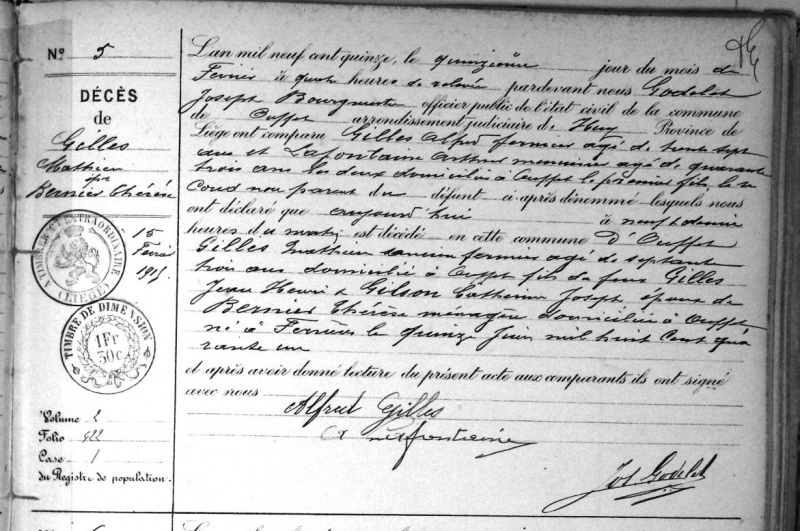 N° 5
DÉCÈS
de
Gilles
Mathieu
épx
Bernier Thérèse
15
Février
1915
TIMBRE EXTRAORDINAIRE
(LIÈGE)
TIMBRE DE DIMENSION
1 Fr
30c
Volume 2
Folio 422
Case 1
du Registre de population.
L'an mil neuf cent quinze, le quinzième jour du mois de
Février à quatre heures de relevée pardevant nous Godelet
Joseph Bourgmestre officier public de l'état civil de la commune
de Ouffet arrondissement judiciaire de Huy Province de
Liège ont comparu Gilles Alfred fermier agé de trente sept
ans et Lafontaine Arthur menuisier agé de quarante
trois ans les deux domiciliés à Ouffet le premier fils, le se
cond non parent du défunt ci après dénommé lesquels nous
ont déclaré que aujourd'hui à neuf & demie
heures du matin est décédé en cette commune D'Ouffet
Gilles Mathieu ancien fermier agé de septante
trois ans domicilié à Ouffet fils de feux Gilles
Jean Henri & Gilson Catherine Joseph époux de
Bernier Thérèse ménagère domiciliée à Ouffet
né à Ferrières le quinze Juin mil huit cent qua
rante un
et après avoir donné lecture du présent acte aux comparants ils ont signé
avec nous
Alfred Gilles
Lafontaine
Jos Godelet